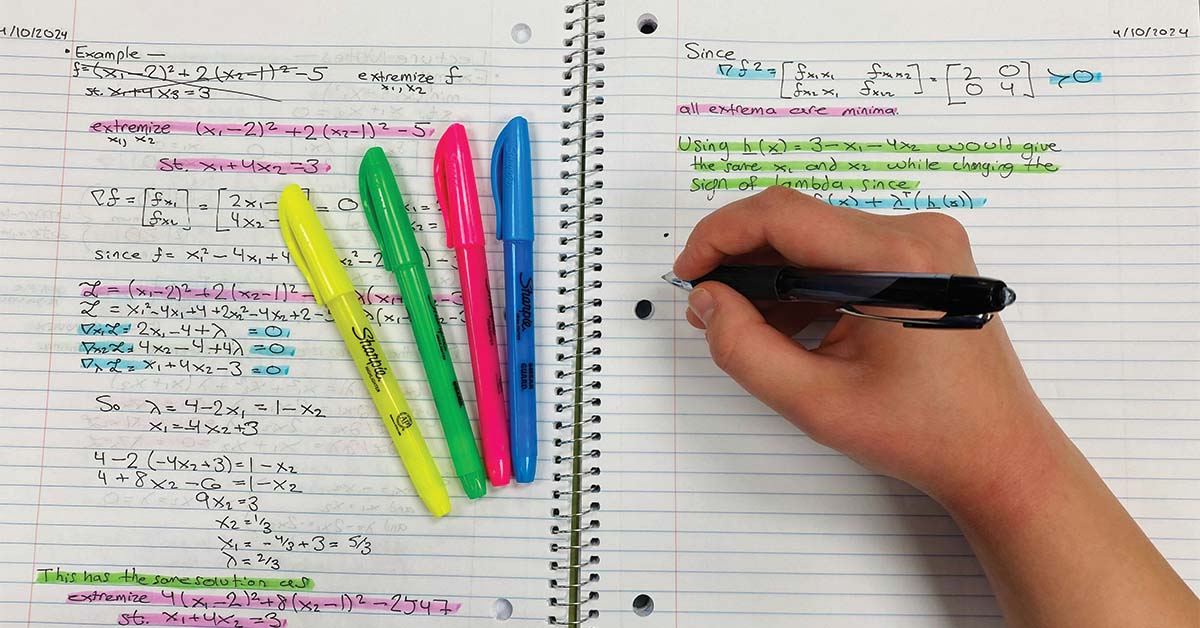 4/10/2024
• Example —
f=(x₁-2)²+2(x₂-1)²-5 extremize f
x₁,x₂
st. x₁+4x₃=3
extremize (x₁-2)²+2(x₂-1)²-5
x₁, x₂
st. x₁+4x₂=3
∇f = [fx₁ fx₂] = [2x₁- 4x₂ = 0
since f= x₁²-4x₁+4
ℒ = (x₁-2)²+2(x₂-1)²-
ℒ = x₁²-4x₁+4+2x₂²-4x₂+2-
∇x₁ℒ= 2x₁-4+λ =0
∇x₂ℒ= 4x₂-4+4λ =0
∇λℒ= x₁+4x₂-3 =0
So λ=4-2x₁=1-x₂
x₁=-4x₂+3
4-2(-4x₂+3)=1-x₂
4+8x₂-6=1-x₂
9x₂=3
x₂=1/3
x₁=-4/3+3=5/3
λ=2/3
This has the same solution as
extremize 4(x₁-2)²+8(x₂-1)²-2547
st. x₁+4x₂=3
Sharpie
Sharpie
SMEAR GUARD
4/10/2024
Since
∇f² = [fx₁x₁ fx₁x₂ fx₂x₁ fx₂x₂] = [2 0 0 4] >0
all extrema are minima.
Using h(x)=3-x₁-4x₂ would give
the same x₁ and x₂ while changing the
sign of lambda, since
(x)+λᵀ(h(x))